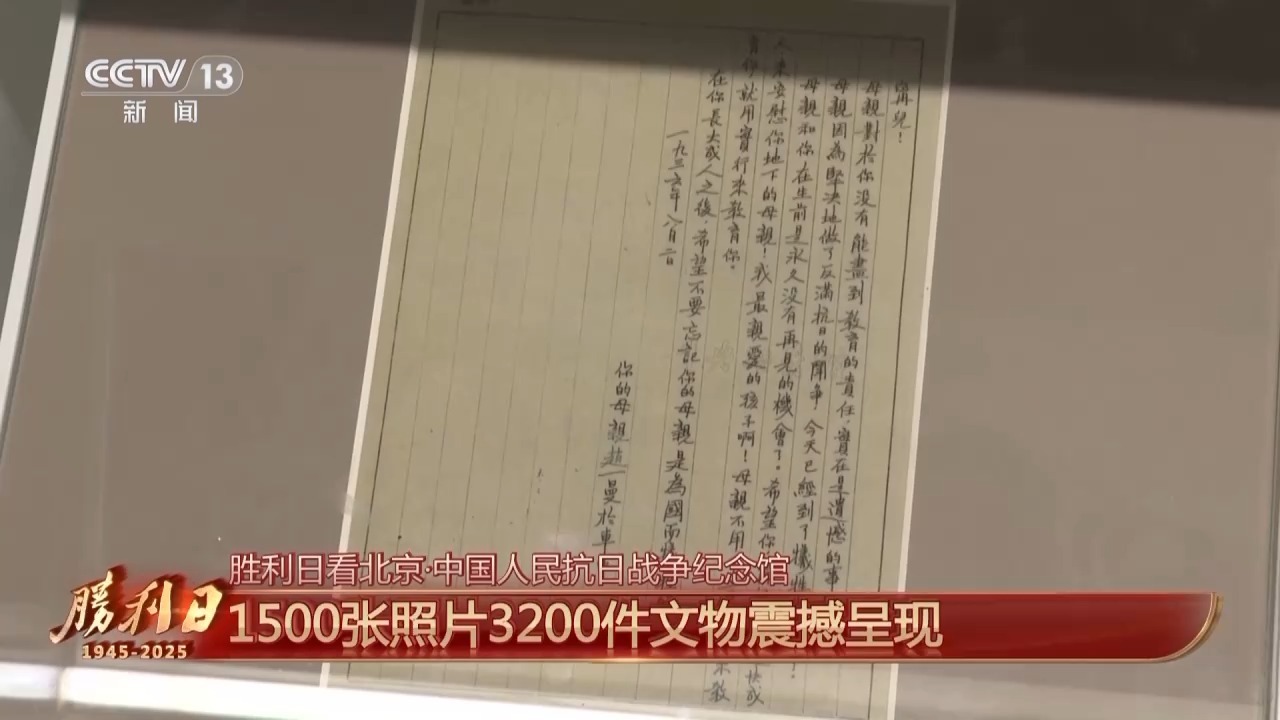 CCTV 13
新闻
寧兒！
母親對於你没有能盡到教育的責任，實在是遺憾的事
母親因為堅決地做了反滿抗日的鬥爭，今天已經到了犧牲
母親和你在生前是永久没有再見的機會了。希望你
人來安慰你地下的母親！我最親愛的孩子啊！母親不用
就用實行來教育你。
在你長大成人之後，希望不要忘記你的母親是為國而
一九三六年八月二日
你的母親趙一曼於車
胜利日看北京·中国人民抗日战争纪念馆
1500张照片3200件文物震撼呈现
勝利日
1945-2025